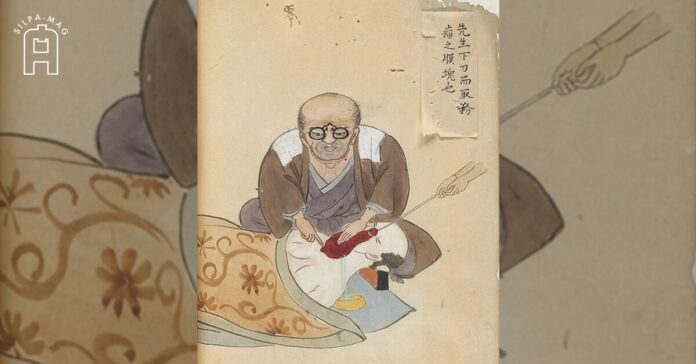 SILPA-MAG
先生下刀而取粉
瘤之膜塊也